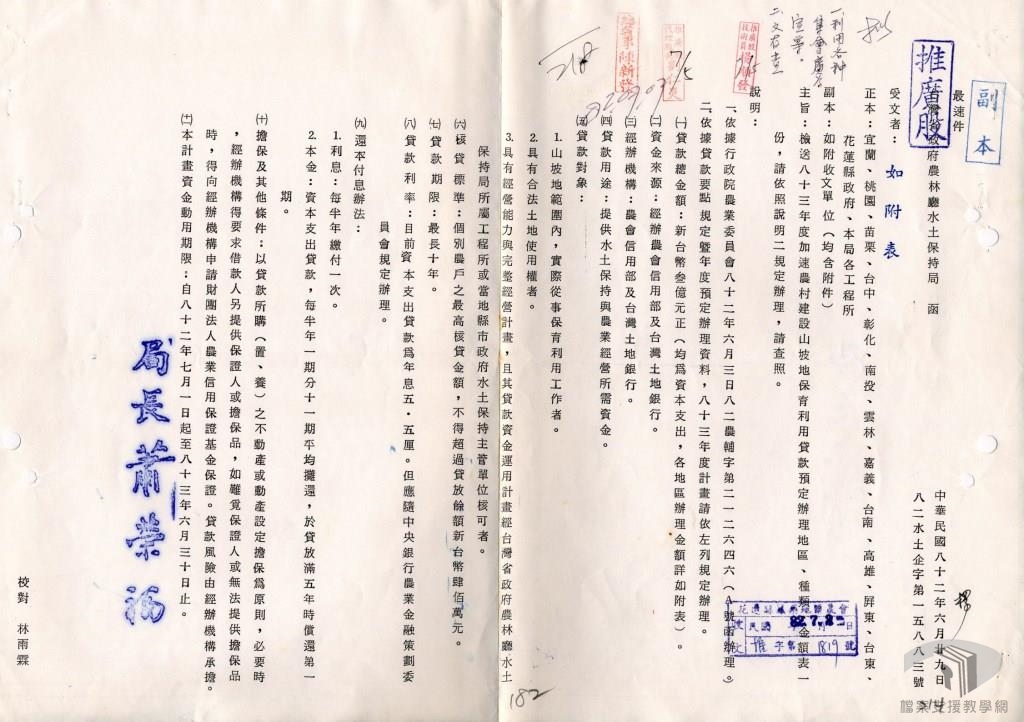 副本
最速件
推廣股
省政府農林廳水土保持局 函
中華民國八十二年六月廿九日
八二水土企字第一五八八三號
受文者：如附表
正本：宜蘭、桃園、苗栗、台中、彰化、南投、雲林、嘉義、台南、高雄、屏東、台東、
花蓮縣政府、本局各工程所
副本：如附收文單位（均含附件）
主旨：檢送八十三年度加速農村建設山坡地保育利用貸款預定辦理地區、種類 金額表一
份，請依照說明二規定辦理，請查照。
說明：
一、依據行政院農業委員會八十二年六月三日八二農輔字第二一二六四六（A號函辦理。
二、依據貸款要點規定暨年度預定辦理資料，八十三年度計畫請依左列規定辦理。
㈠貸款總金額：新台幣叁億元正（均爲資本支出，各地區辦理金額詳如附表）。
㈡資金來源：經辦農會信用部及台灣土地銀行。
㈢經辦機構：農會信用部及台灣土地銀行。
㈣貸款用途：提供水土保持與農業經營所需資金。
㈤貸款對象：
1.山坡地範圍內，實際從事保育利用工作者。
2.具有合法土地使用權者。
3.具有經營能力與完整經營計畫，且其貸款資金運用計畫經台灣省政府農林廳水土
保持局所屬工程所或當地縣市政府水土保持主管單位核可者。
㈥核貸標準：個別農戶之最高核貸金額，不得超過貸放餘額新台幣肆佰萬元。
㈦貸款期限：最長十年。
㈧貸款利率：目前資本支出貸款爲年息五·五厘。但應隨中央銀行農業金融策劃委
員會規定辦理。
㈨還本付息辦法：
1.利息：每半年繳付一次。
2.本金：資本支出貸款，每半年一期分十一期平均攤還，於貸放滿五年時償還第一
期。
㈩擔保及其他條件：以貸款所購（置、養）之不動產或動產設定擔保爲原則，必要時
，經辦機構得要求借款人另提供保證人或擔保品，如難覓保證人或無法提供擔保品
時，得向經辦機構申請財團法人農業信用保證基金保證。貸款風險由經辦機構承擔。
㈩一本計畫資金動用期限：自八十二年七月一日起至八十三年六月三十日止。
局長蕭榮福
校對 林雨霖
一、利用各种
集會廣告
宣導。
二、文存查
總幹事陳新發
民國 82.7.2 日
文 推字第 1819 號
182
檔案支援教學網